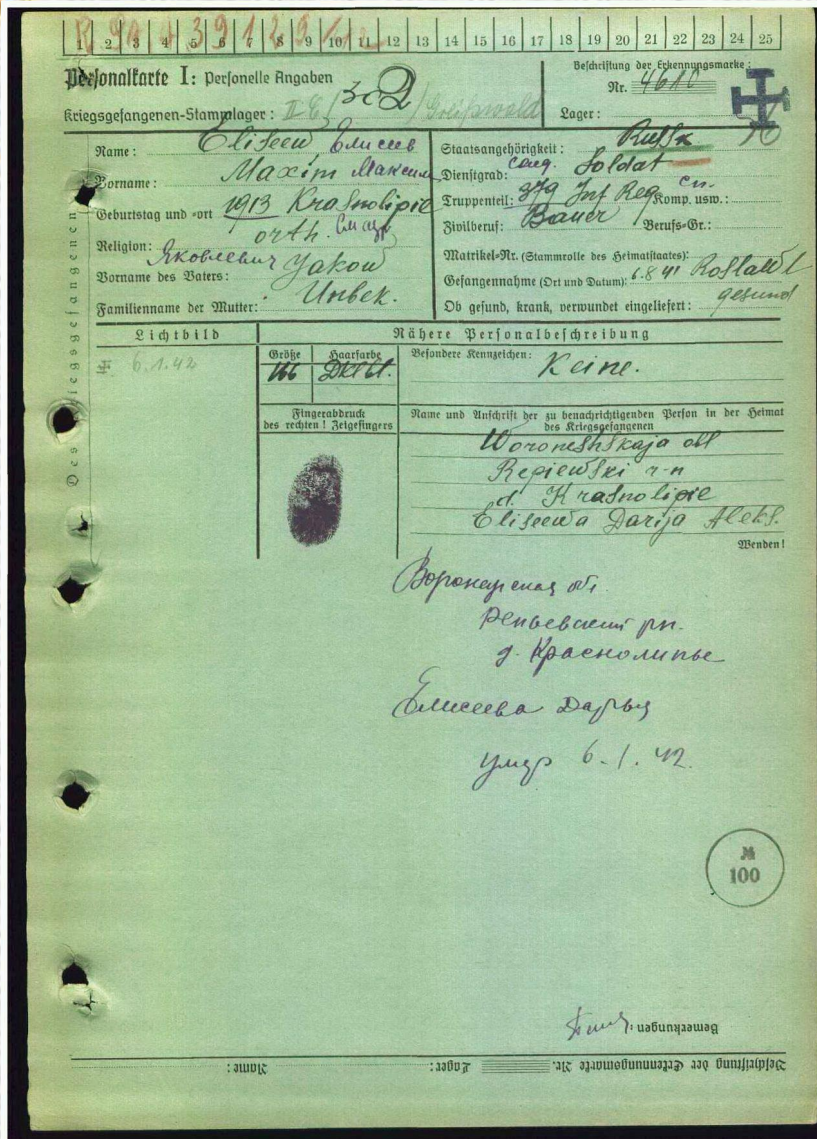 1 2 3 4 5 6 7 8 9 10 11 12 13 14 15 16 17 18 19 20 21 22 23 24 25
Personalkarte I: Personelle Angaben
Kriegsgefangenen-Stammlager: II C / Greifswald
Beschriftung der Erkennungsmarke:
Nr. 4610
Lager:
Name: Eliseew Елисеев
Vorname: Maxim Максим
Geburtstag und -ort 1913 Krasnolipie
Religion: orth.
Яковлевич
Vorname des Vaters: Jakow
Familienname der Mutter: Unbek.
Staatsangehörigkeit: Russe
Dienstgrad: Soldat
Truppenteil: 379 Inf Reg Komp. usw.:
Zivilberuf: Bauer Berufs-Gr.:
Matrikel-Nr. (Stammrolle des Heimatstaates):
Gefangennahme (Ort und Datum): 6.8 41 Roslawl
Ob gesund, krank, verwundet eingeliefert: gesund
Des Kriegsgefangenen
Lichtbild
6.1.42
Nähere Personalbeschreibung
Größe Haarfarbe Besondere Kennzeichen:
166 Dklbl. Keine.
Fingerabdruck
des rechten! Zeigefingers
Name und Anschrift der zu benachrichtigenden Person in der Heimat
des Kriegsgefangenen
Woroneshskaja obl
Repiewski r-n
d. Krasnolipie
Eliseewa Darija Aleks.
Wenden!
Воронежская обл.
Репьевский рн.
д. Краснолипье
Елисеева Дарья
умер 6.1.42.
№
100
Bemerkungen:
Beschriftung der Erkennungsmarke Nr. Lager: Name: